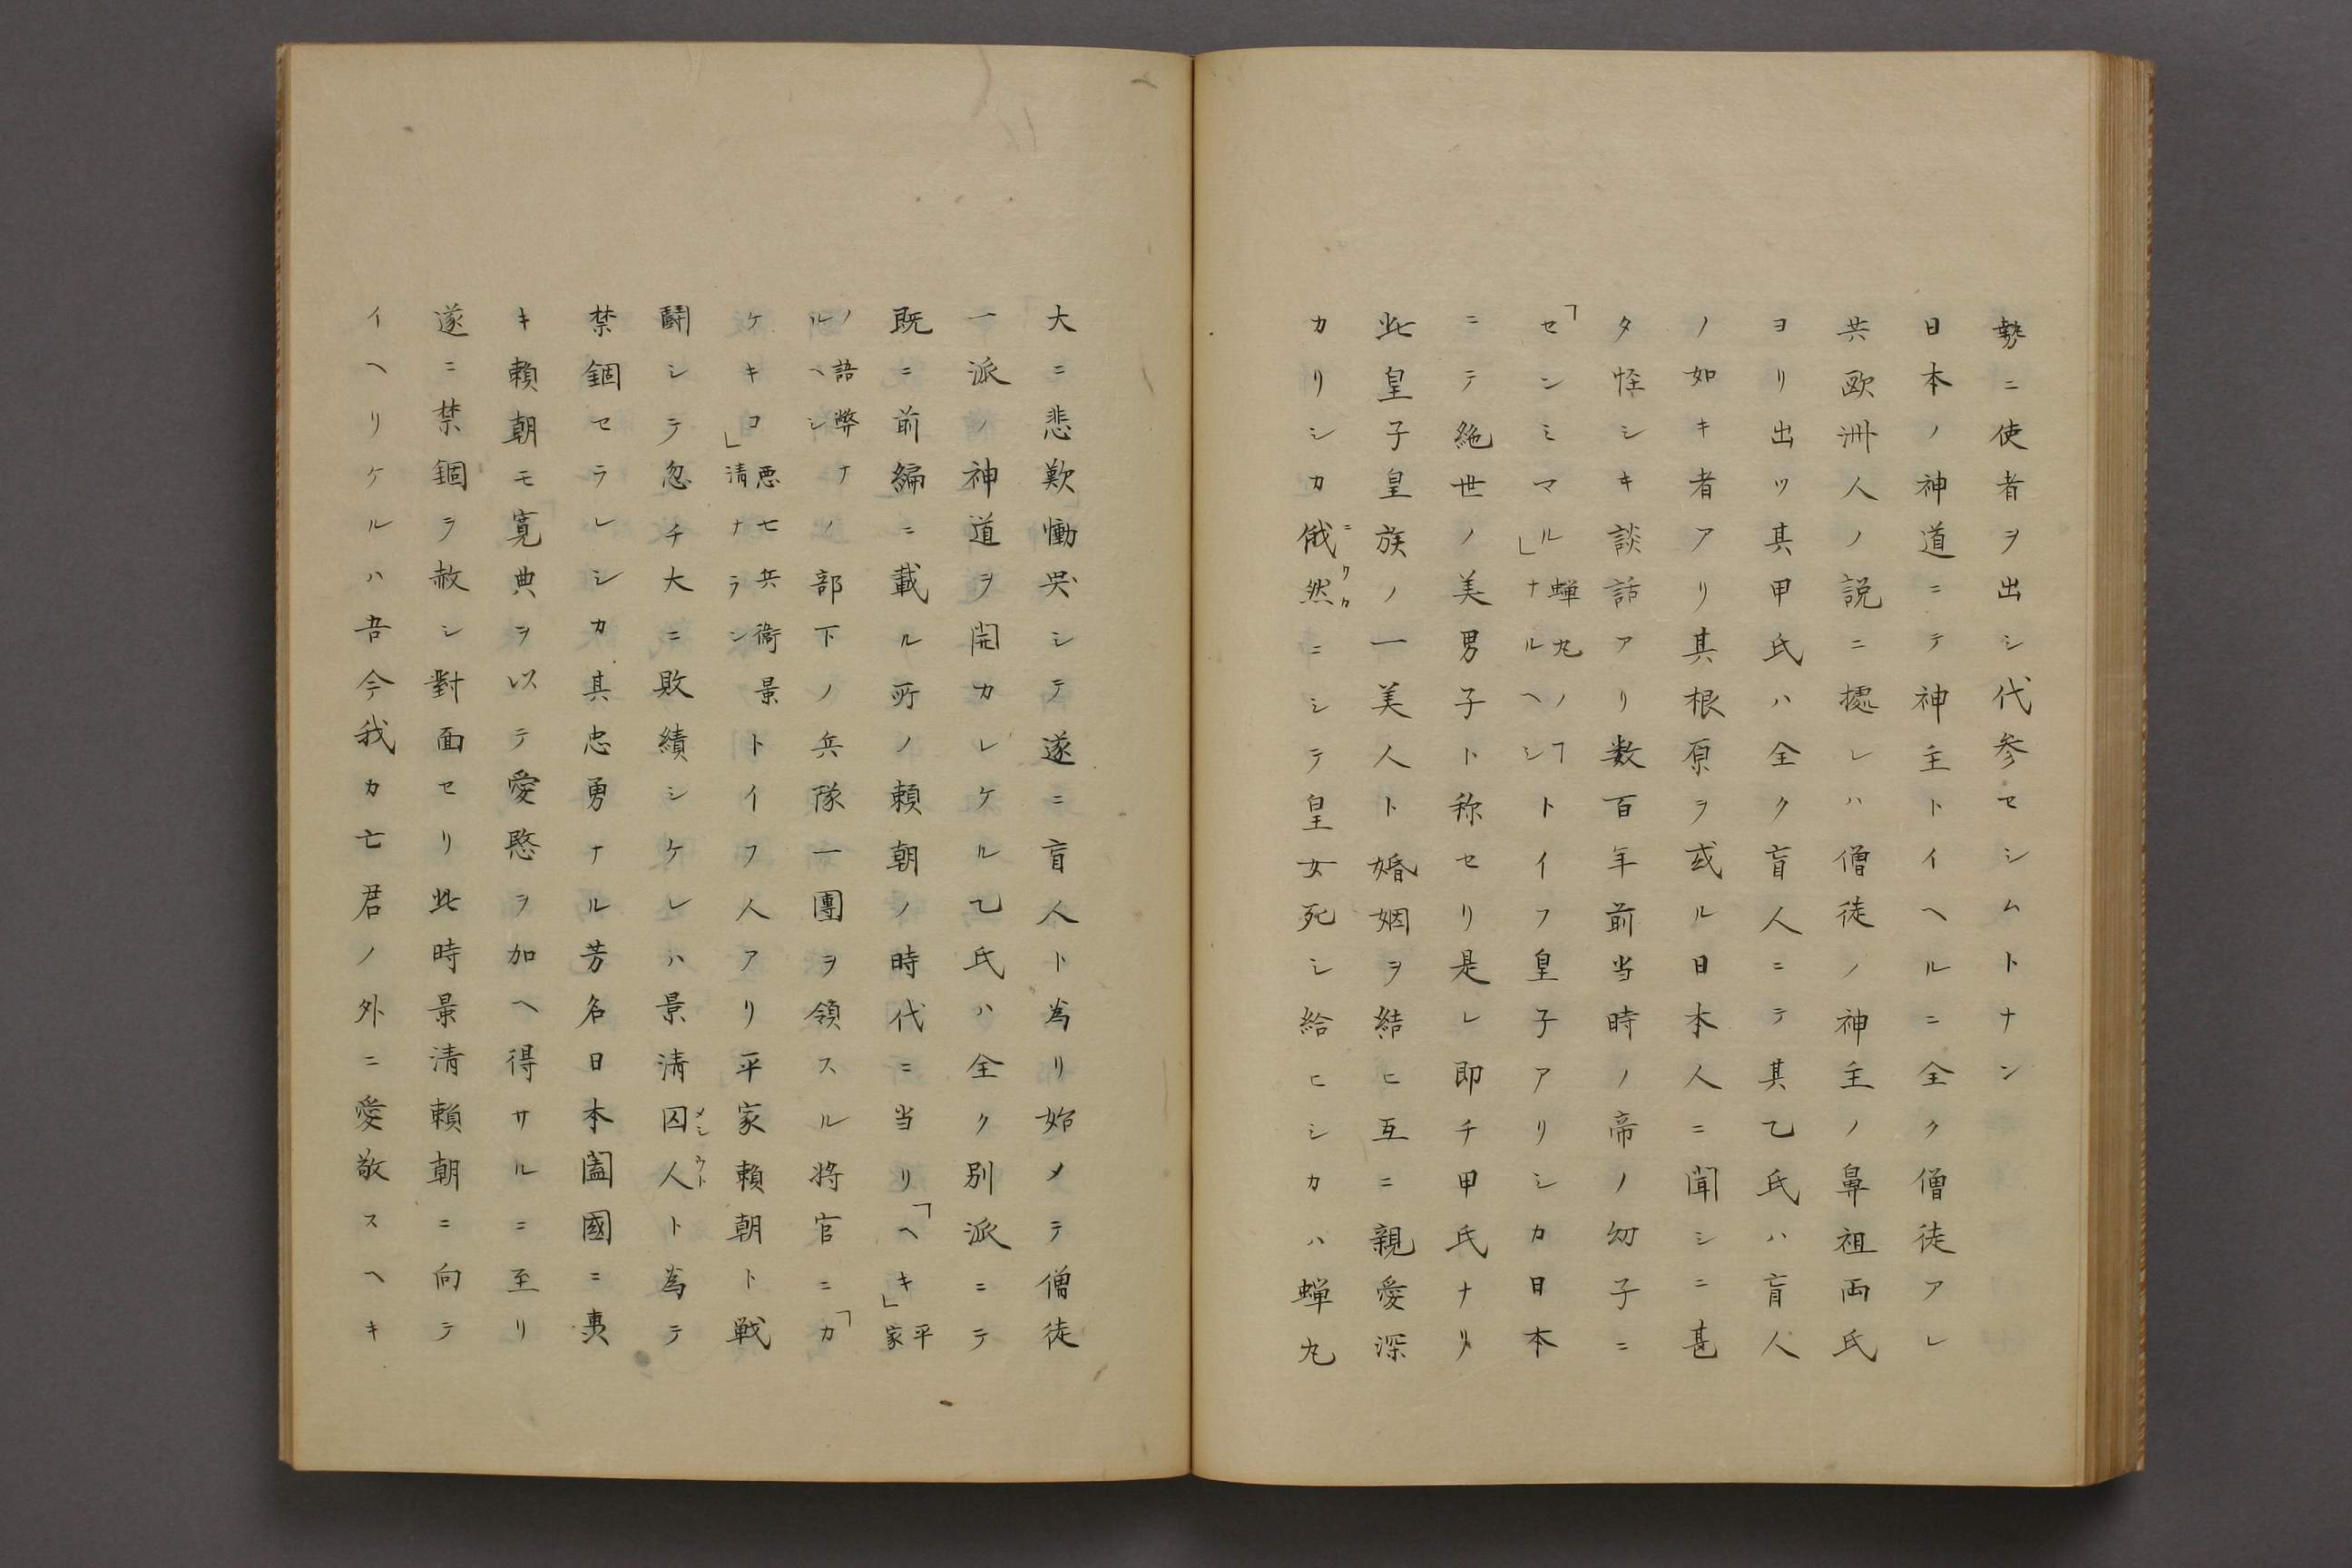 勢ニ使者ヲ出シ代参セシムトナン
日本ノ神道ニテ神主トイヘルニ全ク僧徒アレ
共欧洲人ノ説ニ㨿レハ僧徒ノ神主ノ鼻祖両氏
ヨリ出ツ其甲氏ハ全ク盲人ニテ其乙氏ハ盲人
ノ如キ者アリ其根原ヲ或ル日本人ニ聞シニ甚
タ怪シキ談話アリ数百年前当時ノ帝ノ幼子ニ
「センミマル」蝉丸ノヿナルヘシトイフ皇子アリシカ日本
ニテ絶世ノ美男子ト称セリ是レ即チ甲氏ナリ
此皇子皇族ノ一美人ト婚姻ヲ結ヒ互ニ親愛深
カリシカ俄然ニワカニシテ皇女死シ給ヒシカハ蝉丸
大ニ悲歎慟哭シテ遂ニ盲人ト為リ始メテ僧徒
一派ノ神道ヲ開カレケル乙氏ハ全ク別派ニテ
既ニ前編ニ載ル所ノ頼朝ノ時代ニ当リ「ヘキ」平家
ノ語弊ナルヘシノ部下ノ兵隊一團ヲ領スル将官ニ「カ
ケキコ」悪七兵衞景清ナランドイフ人アリ平家頼朝ト戦
鬪シテ忽チ大ニ敗績シケレハ景清囚人メシウトト為テ
禁錮セラレシカ其忠勇ナル芳名日本闔國ニ夷
キ頼朝モ寛典ヲ以テ愛愍ヲ加ヘ得サルニ至リ
遂ニ禁錮ヲ赦シ對面セリ此時景清頼朝ニ向テ
イヘリケルハ吾今我カ亡君ノ外ニ愛敬スヘキ